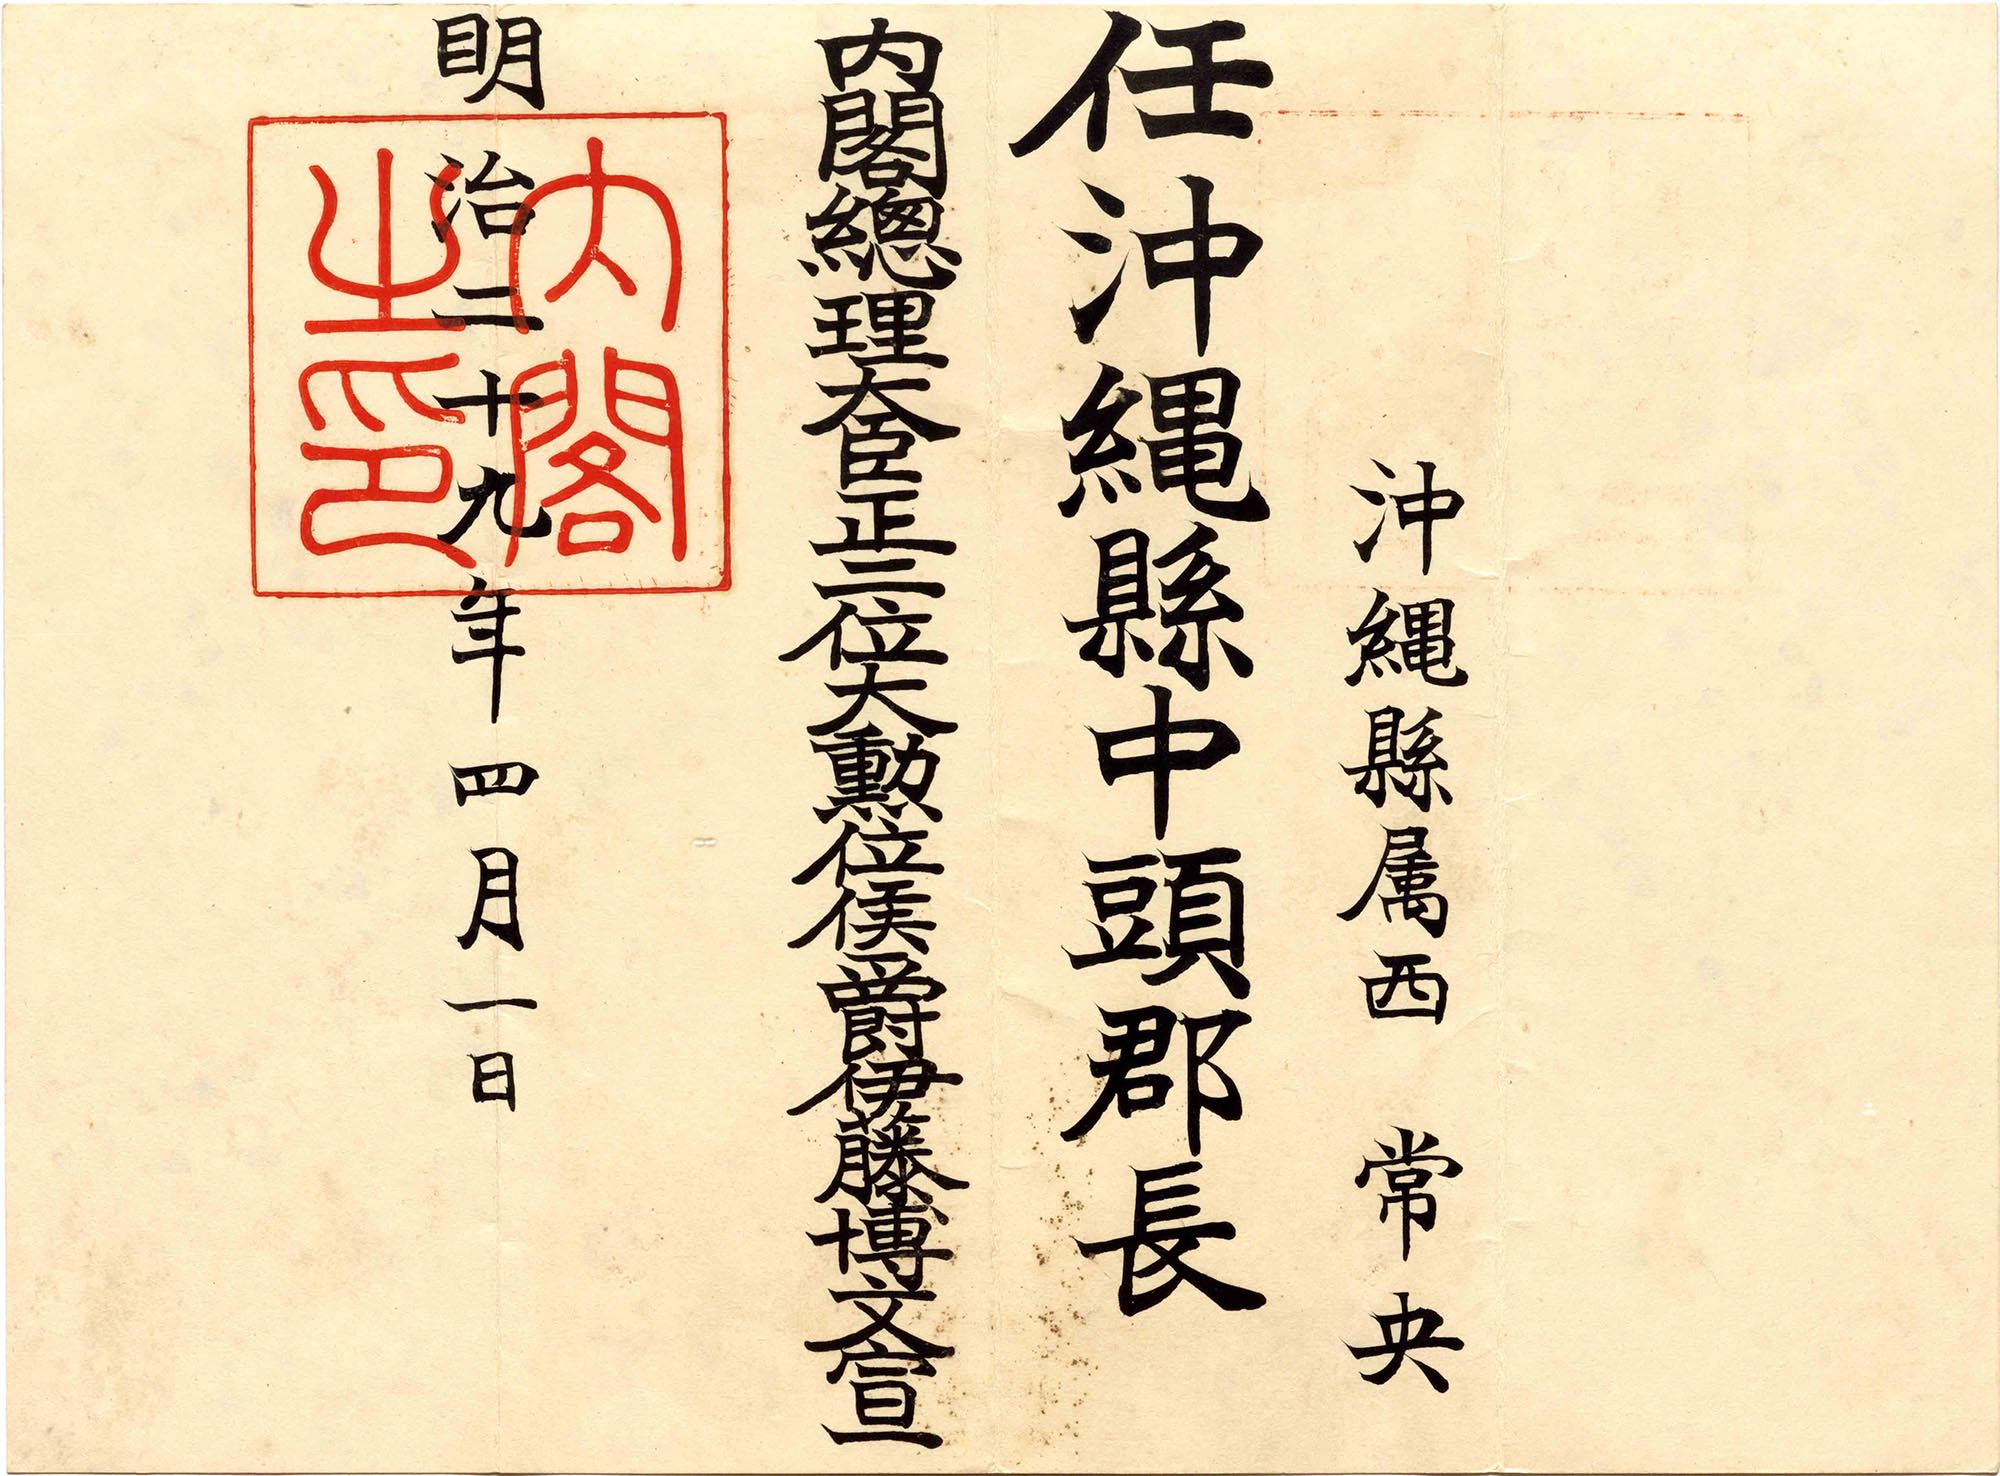 沖縄縣属西 常央
任沖縄縣中頭郡長
内閣總理大臣正二位大勲位侯爵伊藤博文宣
明治二十九年四月一日
内閣
之印